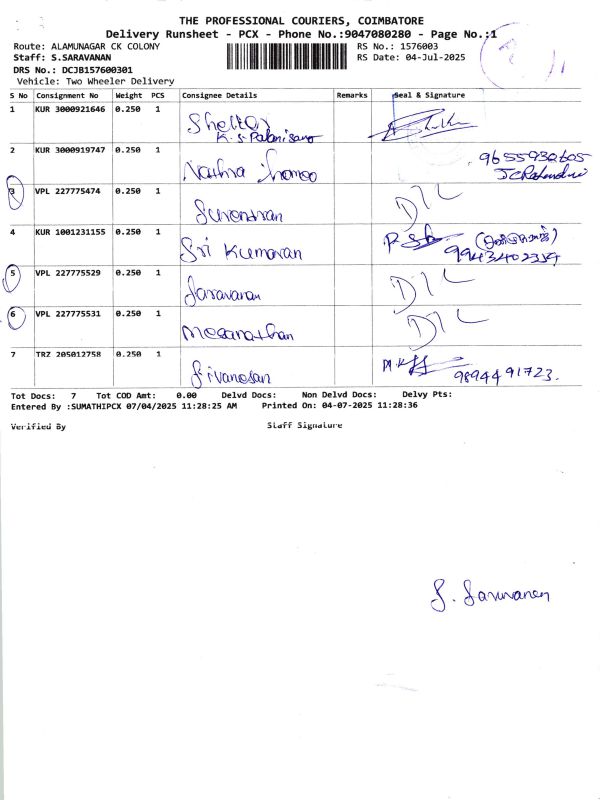 THE PROFESSIONAL COURIERS, COIMBATORE
Delivery Runsheet - PCX - Phone No.:9047080280 - Page No.:1
Route: ALAMUNAGAR CK COLONY
RS No.: 1576003
Staff: S.SARAVANAN
RS Date: 04-Jul-2025
DRS No.: DCJB157600301
Vehicle: Two Wheeler Delivery
S No Consignment No Weight PCS Consignee Details Remarks Seal & Signature
1 KUR 3000921646 0.250 1
K.S. Palanisamy
2 KUR 3000919747 0.250 1 9655930605
3 VPL 227775474 0.250 1 Surendran D/L
4 KUR 1001231155 0.250 1 Sri Kumaran
9943402359
5 VPL 227775529 0.250 1 Saravanan D/L
6 VPL 227775531 0.250 1 D/L
7 TRZ 205012758 0.250 1 Sivanesan 9894491723.
Tot Docs: 7 Tot COD Amt: 0.00 Delvd Docs: Non Delvd Docs: Delvy Pts:
Entered By :SUMATHIPCX 07/04/2025 11:28:25 AM Printed On: 04-07-2025 11:28:36
Verified By Staff Signature
S. Saravanan